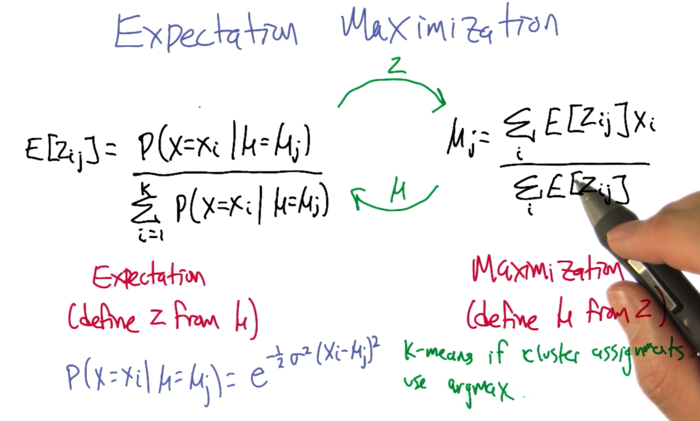 Expectation Maximization
z
E[Zij] = P(x=xi | μ=μj) / Σ_{i=1}^{k} P(x=xi | μ=μj)
μj = Σ_i E[Zij] xi / Σ_i E[Zij]
μ
Expectation
(define z from μ)
Maximization
(define μ from z)
P(x=xi | μ=μj) = e^{-½ σ² (xi-μj)²}
K-means if cluster assignments
use argmax.